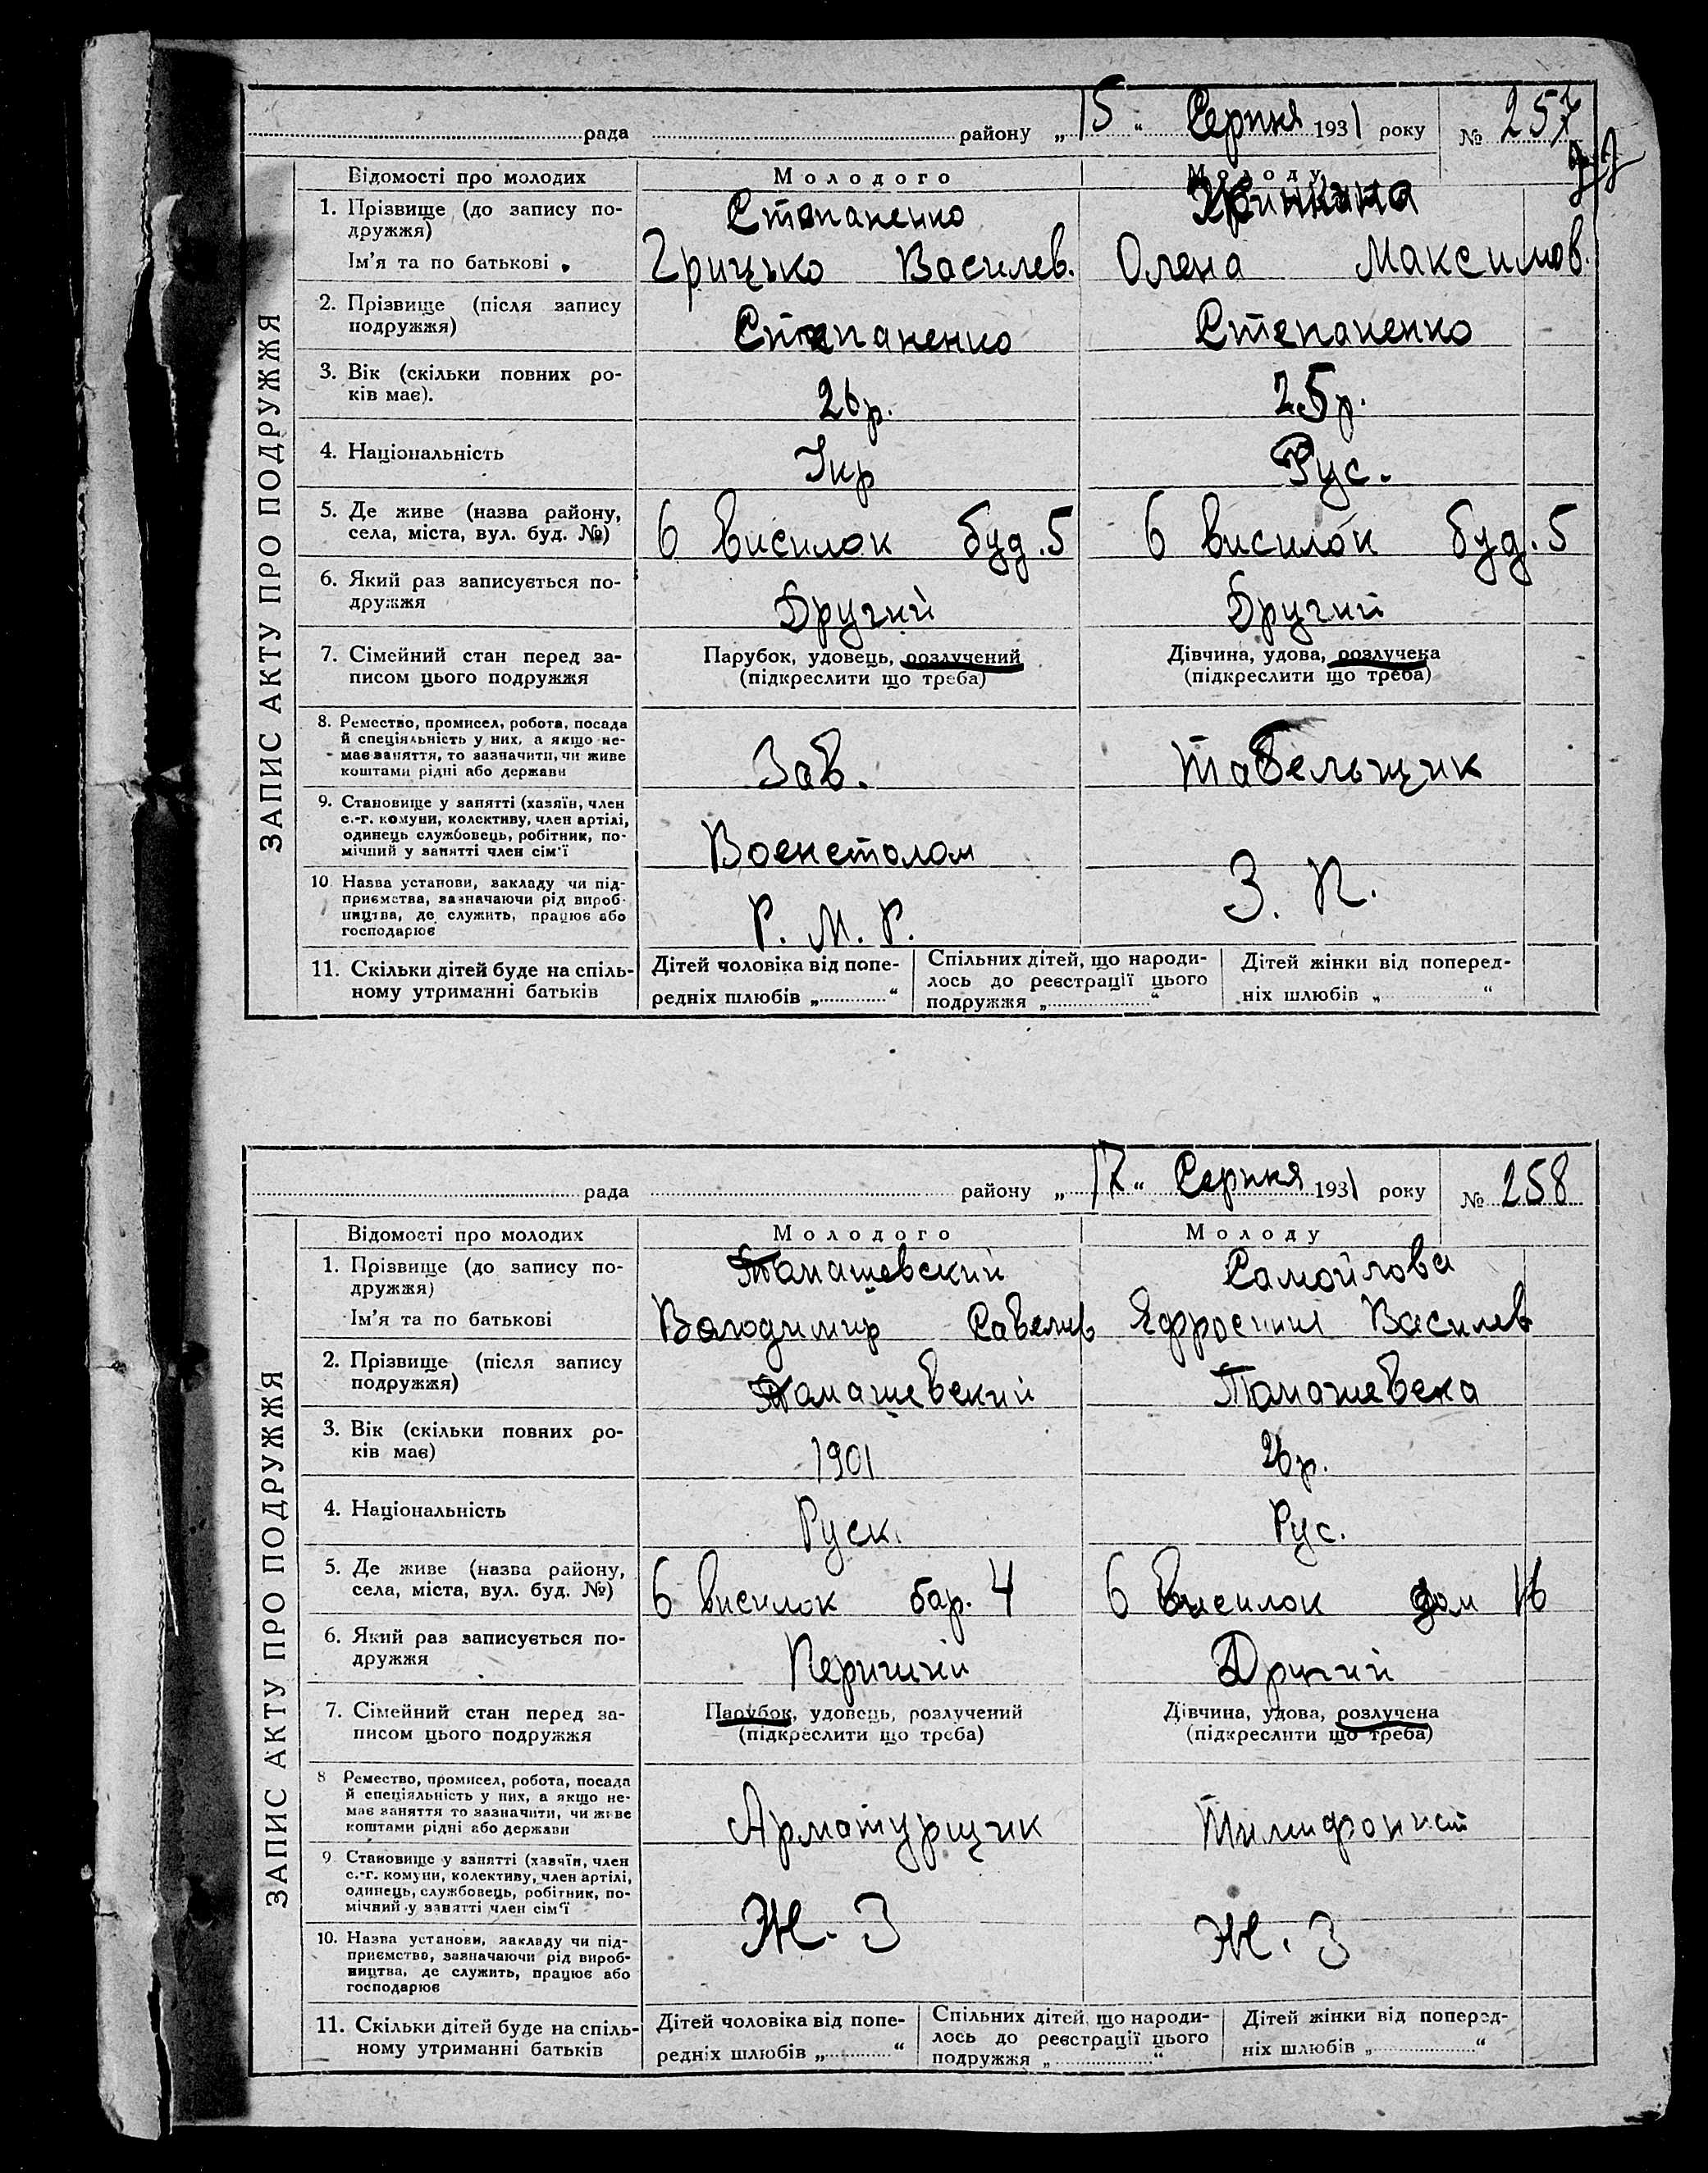 рада района „15“ Серпня 1931 року № 257
ЗАПИС АКТУ ПРО ПОДРУЖЖЯ
Відомості про молодих Молодого Молоду
1. Прізвище (до запису по-
дружжя) Степаненко
Ім'я та по батькові Грицько Василев. Олена Максимов.
2. Прізвище (після запису
подружжя) Степаненко Степаненко
3. Вік (скільки повних ро-
ків має). 26 р. 25 р.
4. Національність Укр Рус.
5. Де живе (назва району,
села, міста, вул. буд. №) 6 висилок буд. 5 6 висилок буд. 5
6. Який раз записується по-
дружжя Другий Другий
7. Сімейний стан перед за-
писом цього подружжя Парубок, удовець, розлучений Дівчина, удова, розлучена
(підкреслити що треба) (підкреслити що треба)
8. Ремество, промисел, робота, посада
й спеціяльність у них, а якщо не-
має заняття, то зазначити, чи живе
коштами рідні або держави Зав. табельщик
9. Становище у занятті (хазяїн, член
с.-г. комуни, колективу, член артілі,
одинець службовець, робітник, по-
мічний у занятті член сім'ї Военстолом
10 Назва установи, закладу чи під-
приємства, зазначаючи рід вироб-
ництва, де служить, працює або
господарює Р. М. Р. З. П.
11. Скільки дітей буде на спіль-
ному утриманні батьків
Дітей чоловіка від попе-
редніх шлюбів „ “
Спільних дітей, що народи-
лось до реєстрації цього
подружжя „ “
Дітей жінки від поперед-
ніх шлюбів „ “
рада району „17“ Серпня 1931 року № 258
ЗАПИС АКТУ ПРО ПОДРУЖЖЯ
Відомості про молодих Молодого Молоду
1. Прізвище (до запису по-
дружжя) Томашевский Самойлова
Ім'я та по батькові Володимир Савелив Ефросиния Василев
2. Прізвище (після запису
подружжя) Томашевский Томашевска
3. Вік (скільки повних ро-
ків має) 1901 26 р.
4. Національність Руск. Рус.
5. Де живе (назва району,
села, міста, вул. буд. №) 6 висилок бар. 4 6 висилок дом 16
6. Який раз записується по-
дружжя Перший Другий
7. Сімейний стан перед за-
писом цього подружжя Парубок, удовець, розлучений Дівчина, удова, розлучена
(підкреслити що треба) (підкреслити що треба)
8 Ремество, промисел, робота, посада
й спеціяльність у них, а якщо не-
має заняття то зазначити, чи живе
коштами рідні або держави Арматурщик Тилифонист
9. Становище у занятті (хазяїн, член
с.-г. комуни, колективу, член артілі,
одинець, службовець, робітник, по-
мічний у занятті член сім'ї Ж. З Ж. З
10. Назва установи, закладу чи під-
приємства, зазначаючи рід вироб-
ництва, де служить, працює або
господарює
11. Скільки дітей буде на спіль-
ному утриманні батьків
Дітей чоловіка від попе-
редніх шлюбів „ “
Спільних дітей, що народи-
лось до реєстрації цього
подружжя „ “
Дітей жінки від поперед-
ніх шлюбів „ “